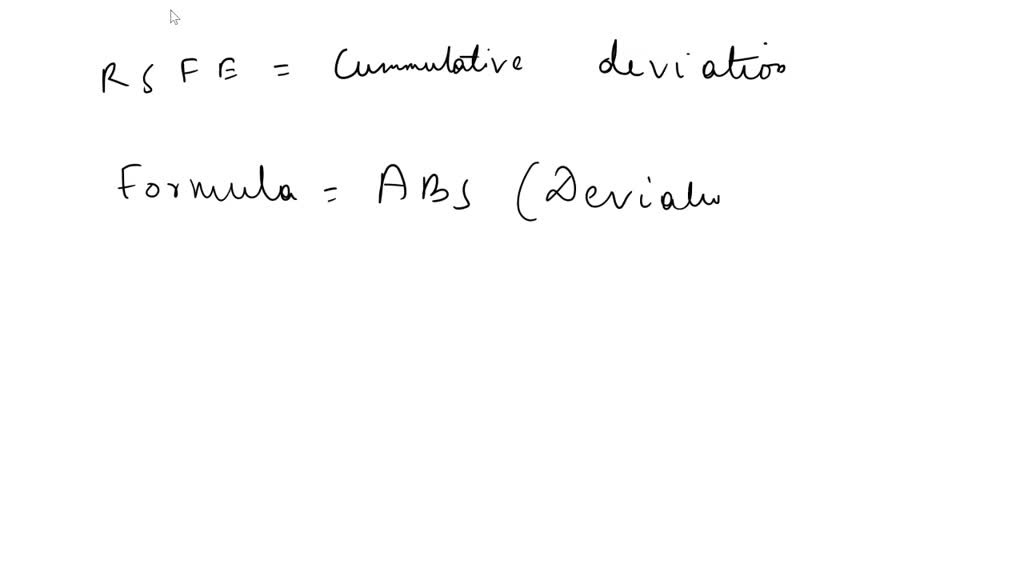 RSFE = Cummulative deviation
Formula = ABS (Deviatio